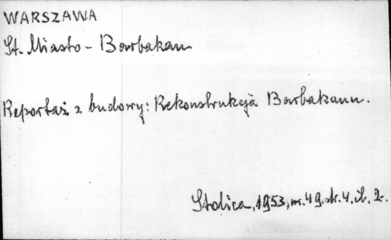 WARSZAWA
St. Miasto - Barbakan
Reportaż z budowy: Rekonstrukcja Barbakanu.
Stolica, 1953, nr. 49. str. 4. il. 2.